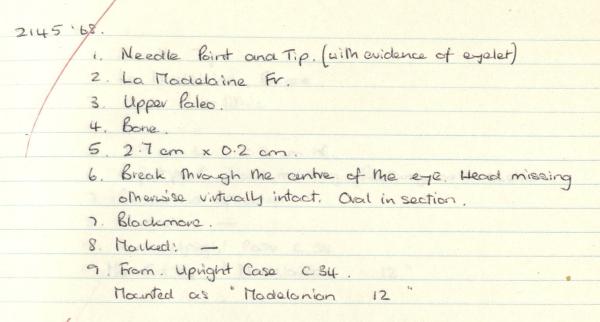 2145·68.
1. Needle Point and Tip. (with evidence of eyelet)
2. La Madelaine Fr.
3. Upper Paleo.
4. Bone.
5. 2.7 cm x 0.2 cm.
6. Break through the centre of the eye. Head missing
otherwise virtually intact. Oval in section.
7. Blackmore.
8. Marked: —
9 From. Upright Case C 34.
Mounted as "Madelanian 12"